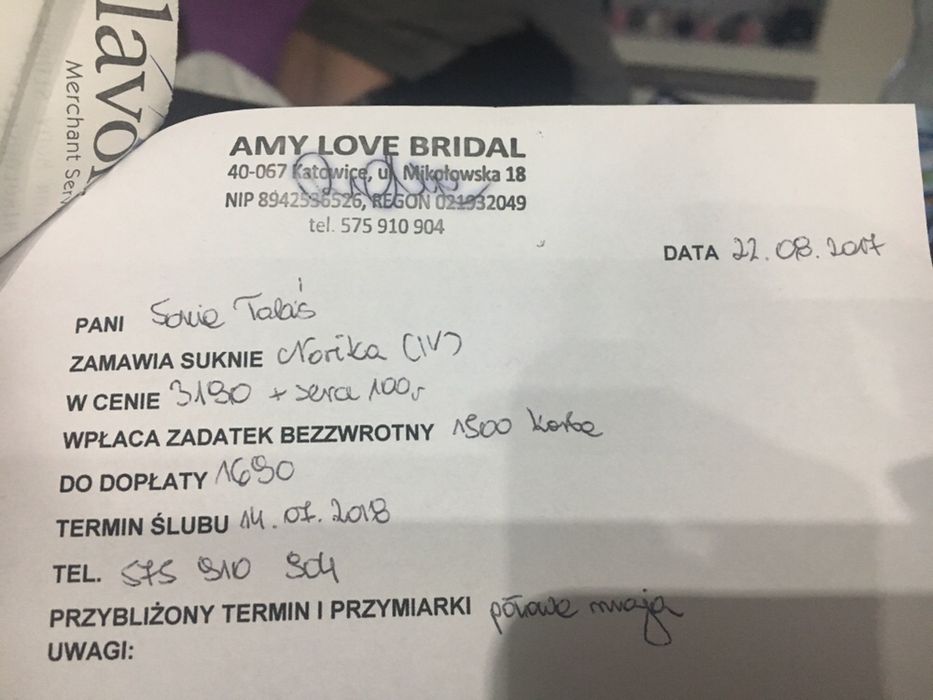 lavo
Merchant Serv
AMY LOVE BRIDAL
40-067 Katowice, ul. Mikołowska 18
NIP 8942538526, REGON 021932049
tel. 575 910 904
DATA 22.08.2017
PANI Sonia
ZAMAWIA SUKNIE Norika (IV)
W CENIE 3190 + 100,-
WPŁACA ZADATEK BEZZWROTNY 1500 karta
DO DOPŁATY 1690
TERMIN ŚLUBU 14.07.2018
TEL. 575 910 904
PRZYBLIŻONY TERMIN I PRZYMIARKI połowa maja
UWAGI: